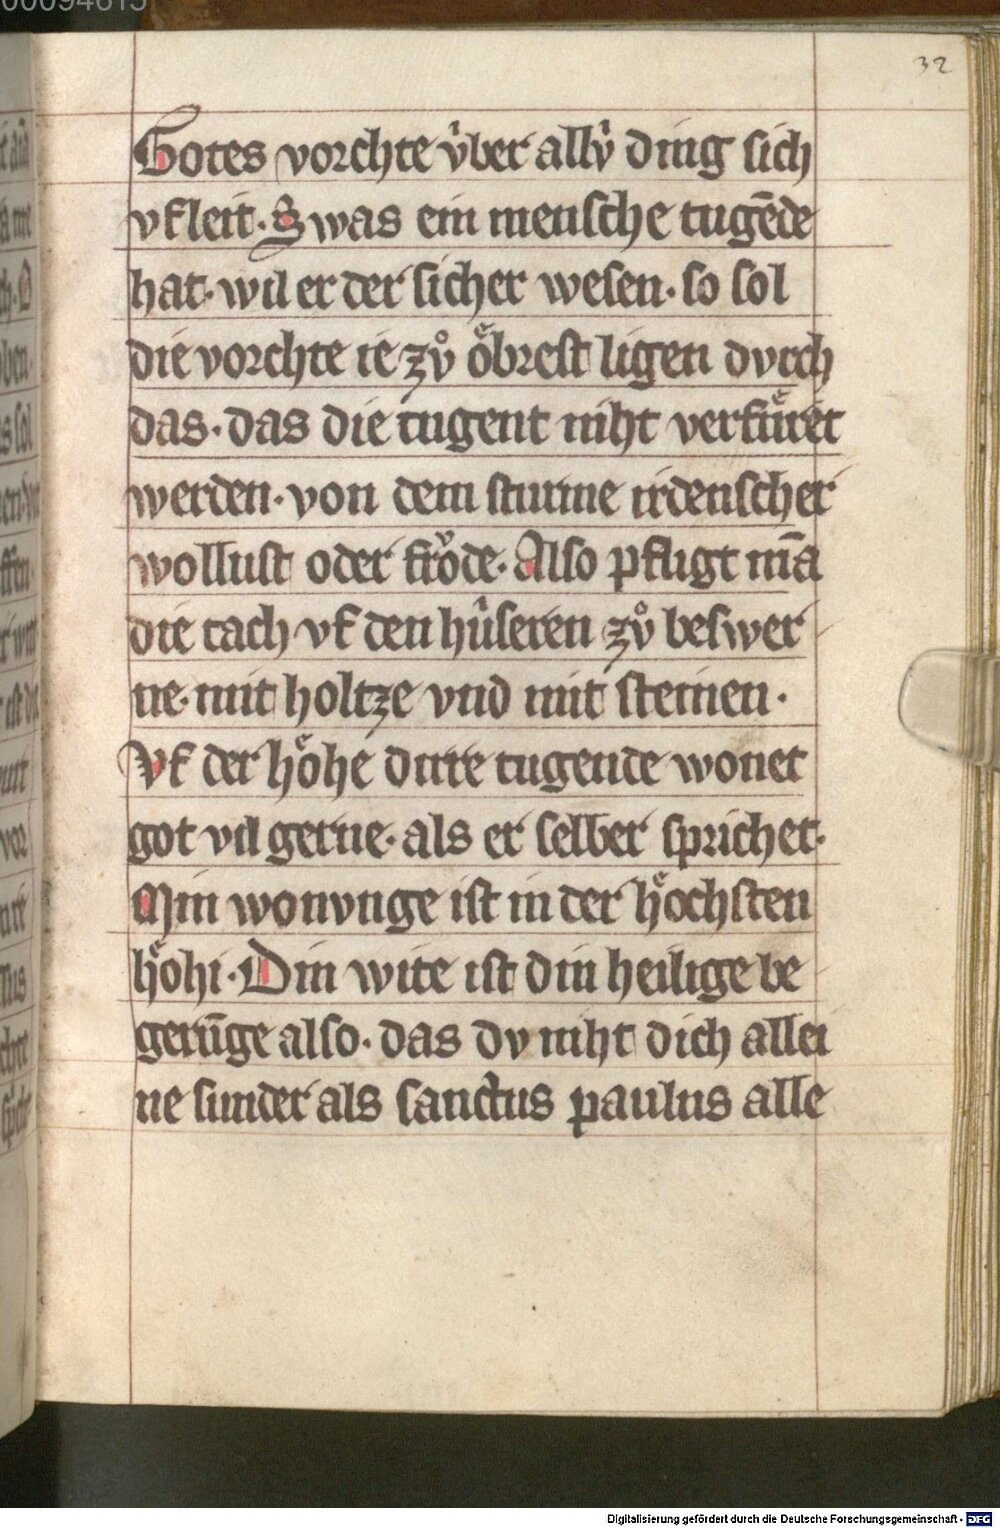 00094615
32
Gotes vorchte v̂ber allv̂ ding sich
vf leit · Swas ein mensche tugēde
hat · wil er der sicher wesen · so sol
die vorchte ie zv̊ oͤbrest ligen dvrch
das · das die tugent niht verfuͤret
werden · von dem sturme irdenscher
wollust oder froͮde · Also pfligt mā
die tach vf den hûseren zv̊ beswer
ne · mit holtze vnd mit steinen ·
Vf der hoͤhe dirre tugende wonet
got vil gerne · als er selber sprichet ·
Min wonvnge ist in der hoͤchsten
hoͤhi · Din wite ist din heilige be
gerūge also · das dv niht dich allei
ne sunder als sanctus paulus alle
Digitalisierung gefördert durch die Deutsche Forschungsgemeinschaft - DFG